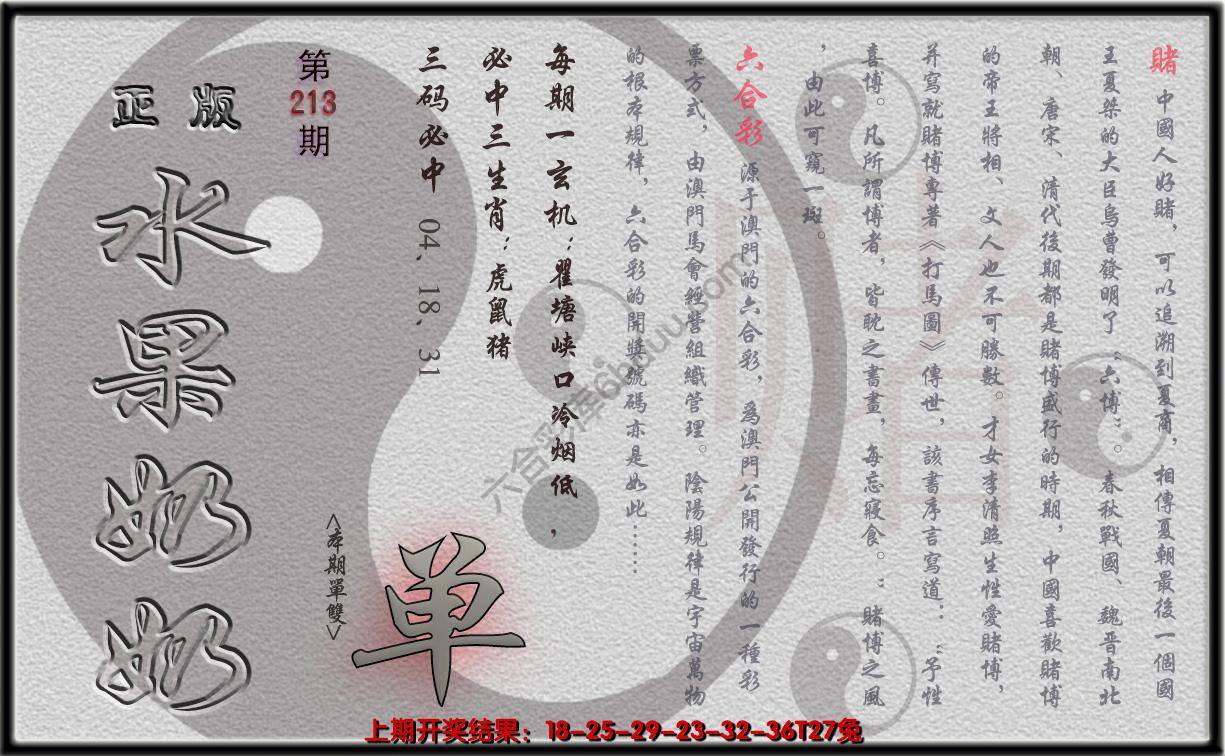 賭 中國人好賭，可以追溯到夏商，相傳夏朝最後一個國
王夏桀的大臣烏曹發明了“六博”。春秋戰國、魏晋南北
朝、唐宋、清代後期都是賭博盛行的時期，中國喜歡賭博
的帝王將相、文人也不可勝數。才女李清照生性愛賭博，
并寫就賭博專著《打馬圖》傳世，該書序言寫道：“予性
喜博。凡所謂博者，皆耽之書畫，每忘寢食。”賭博之風
，由此可窺一斑。
六合彩 源于澳門的六合彩，爲澳門公開發行的一種彩
票方式，由澳門馬會經營組織管理。陰陽規律是宇宙萬物
的根本規律，六合彩的開獎號碼亦是如此……
每期一玄机：瞿塘峡口冷烟低，
必中三生肖：虎鼠猪
三码必中 04、18、31
第
213
期
<本期單雙>
单
正版
水果奶奶
六合彩库6huuu.com
賭
上期开奖结果：18-25-29-23-32-36T27兔